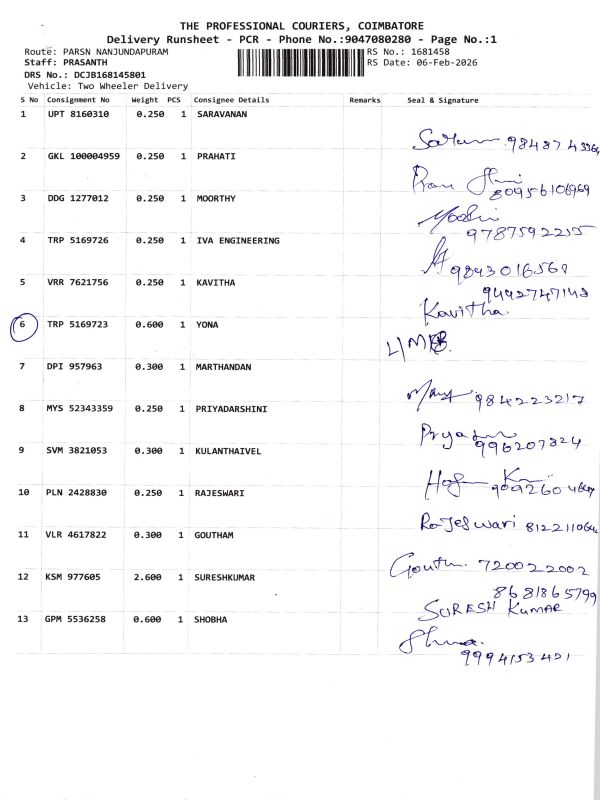 THE PROFESSIONAL COURIERS, COIMBATORE
Delivery Runsheet - PCR - Phone No.:9047080280 - Page No.:1
Route: PARSN NANJUNDAPURAM RS No.: 1681458
Staff: PRASANTH RS Date: 06-Feb-2026
DRS No.: DCJB168145801
Vehicle: Two Wheeler Delivery
S No Consignment No Weight PCS Consignee Details Remarks Seal & Signature
1 UPT 8160310 0.250 1 SARAVANAN
2 GKL 100004959 0.250 1 PRAHATI
3 DDG 1277012 0.250 1 MOORTHY
9787592215
4 TRP 5169726 0.250 1 IVA ENGINEERING
5 VRR 7621756 0.250 1 KAVITHA
Kavitha
6 TRP 5169723 0.600 1 YONA
7 DPI 957963 0.300 1 MARTHANDAN
9842223217
8 MYS 52343359 0.250 1 PRIYADARSHINI
996207824
9 SVM 3821053 0.300 1 KULANTHAIVEL
10 PLN 2428830 0.250 1 RAJESWARI
Rajeswari
11 VLR 4617822 0.300 1 GOUTHAM
720022002
12 KSM 977605 2.600 1 SURESHKUMAR
8681865799
SURESH KUMAR
13 GPM 5536258 0.600 1 SHOBHA